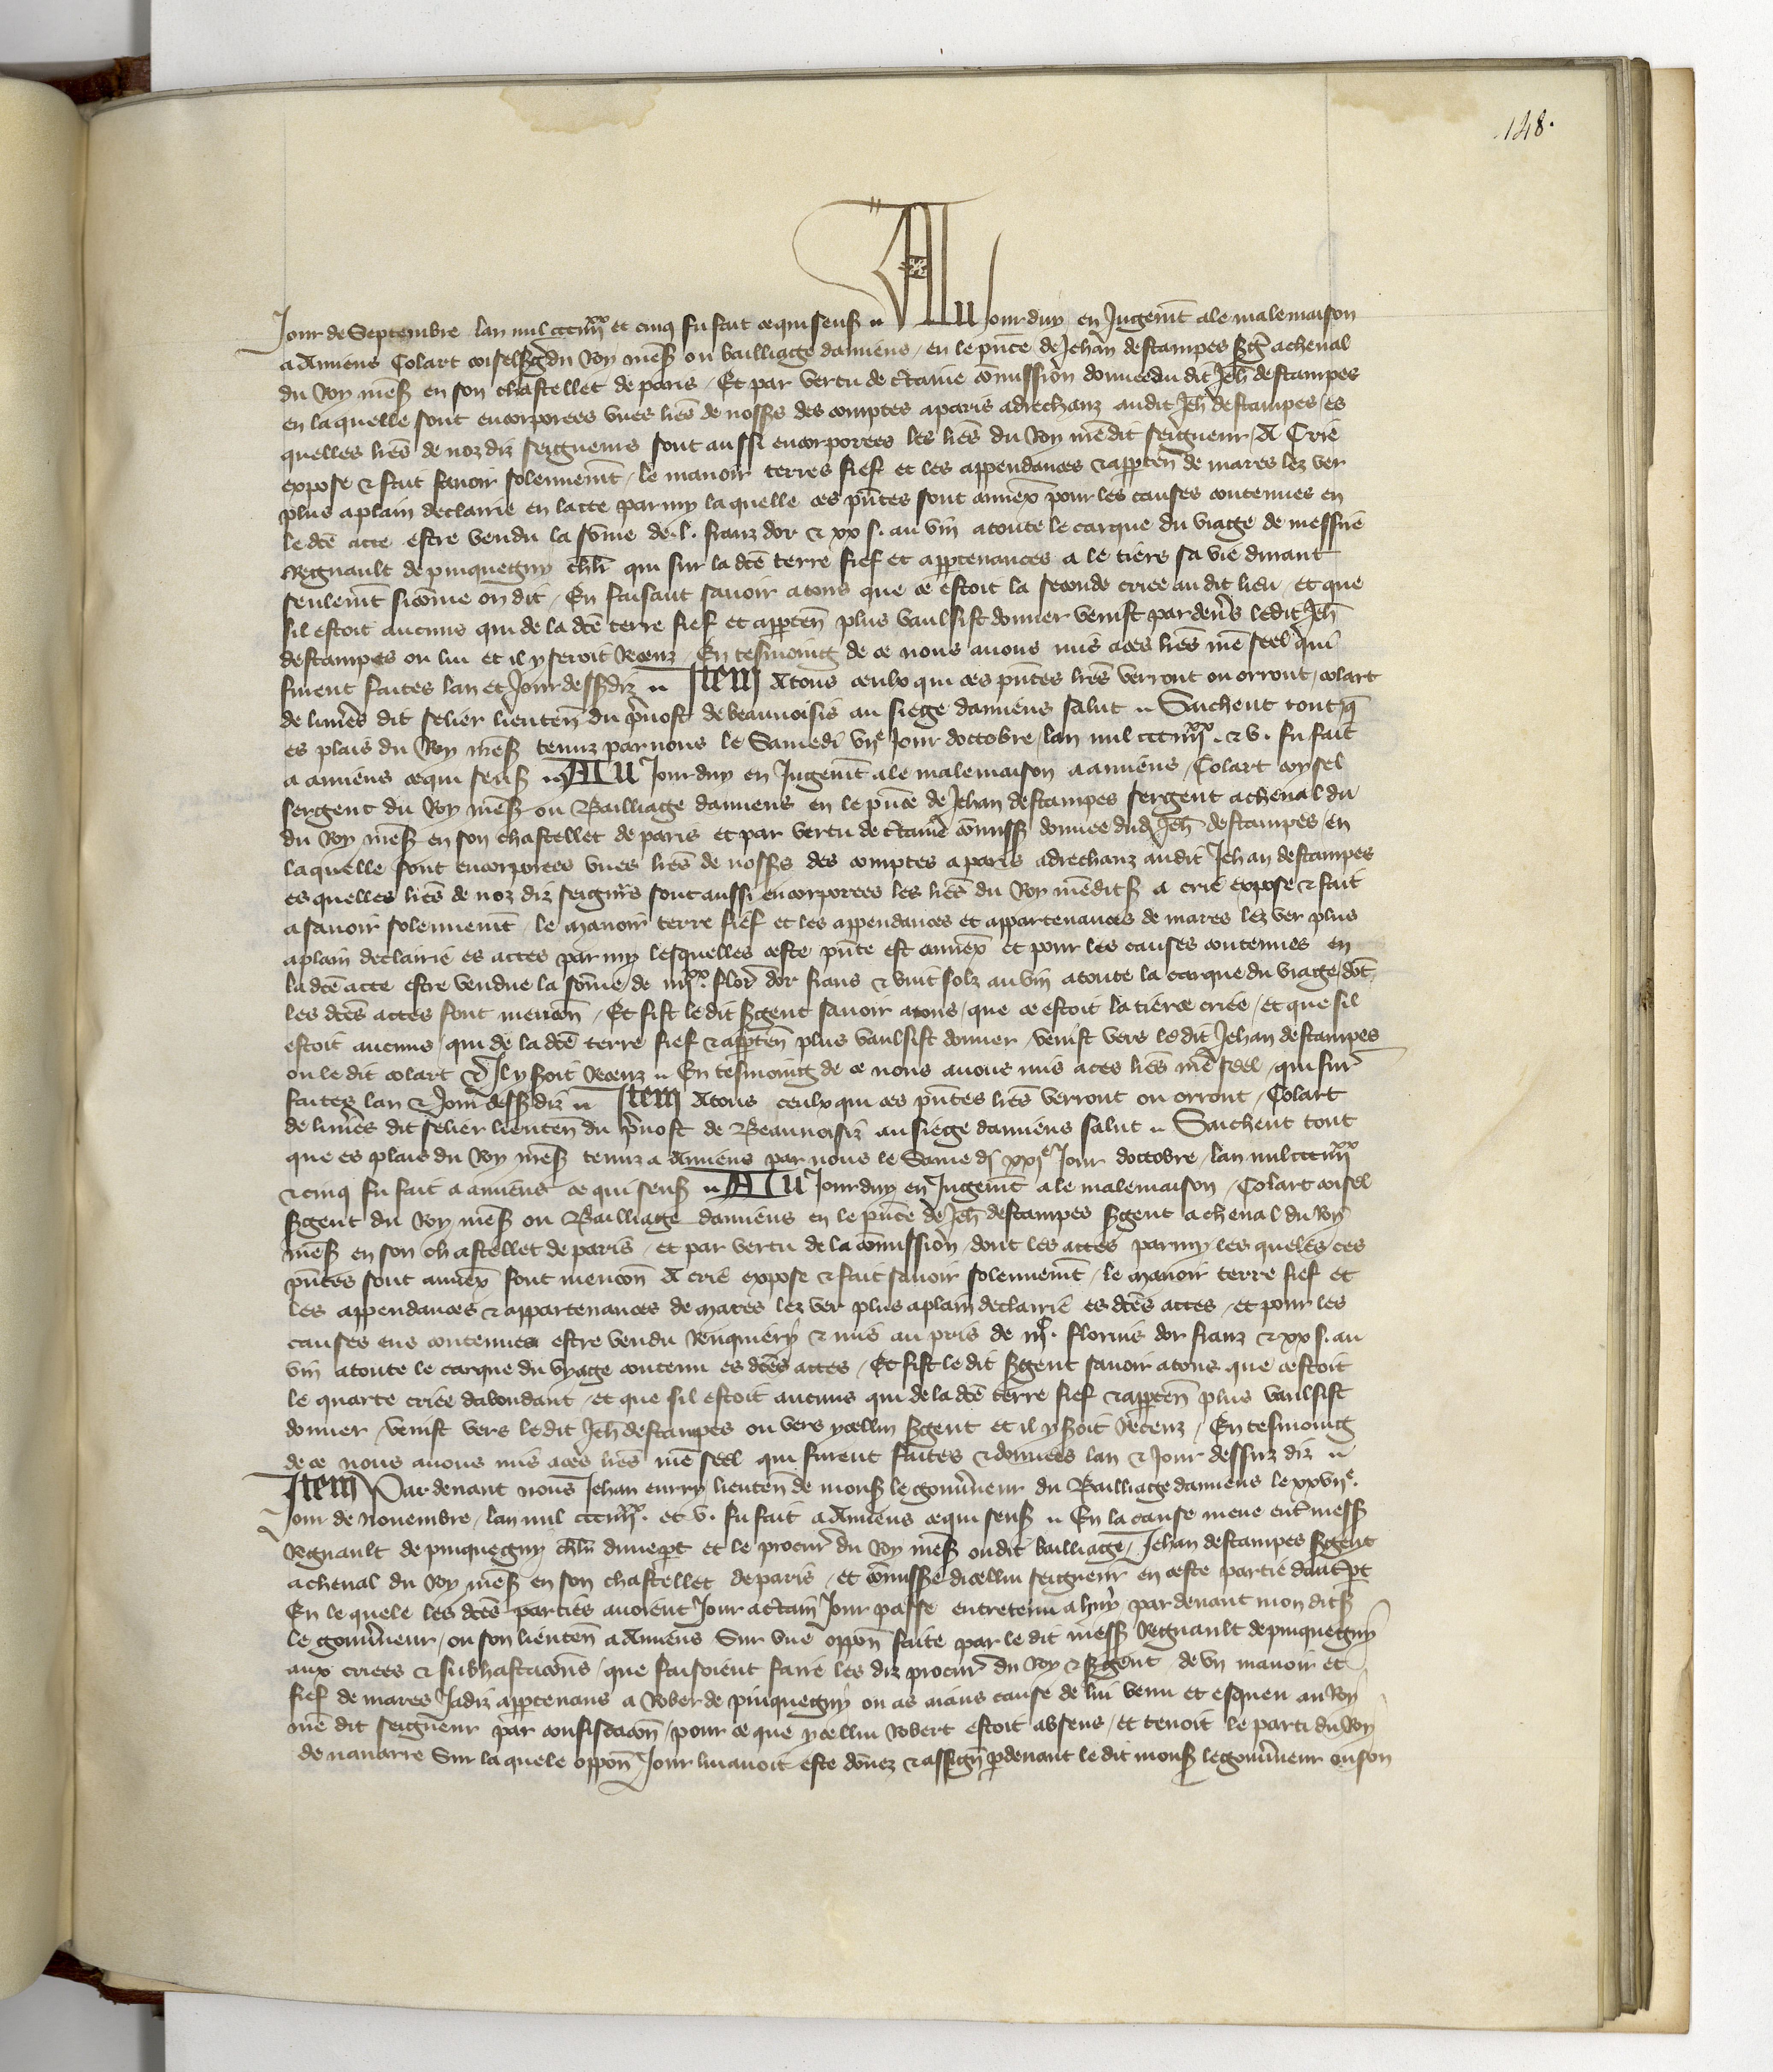 148.
Jour de Septembre lan mil ccciiiixx et cinq fu fait ce qui sensꝫ Au Jourduy en Jugemt̄ ale malemaison
a Amiens Colart coisel sergꝫ du Roy mesꝫ ou bailliage damiens / en le pn̄ce de Jehan destampes sergꝫ acheual
du Roy mesꝫ en son chastellet de paris / Et par vertu de c̄taine cōmission donnee du dit Jeh̄ destampes
en laquelle sont encorporees vnes lrēs de nossrs des comptes aparis adrechanz audit Jeh̄ destampes / es
quelles lrēs de noz diz seigneurs sont aussi encorporees les lrēs du Roy mēdit seigneur / A Crie
expose & fait sauoir solennemt̄ / le manoir terres fief et les appendances & apprten̄ de mares lez ver
plus aplain declairie en lacte parmy laquelle ces pn̄tes sont annex̄ pour les causes contenues en
le dc̄e acte estre vendu la sōme de .l. franz dor & xx s. au vin atoute le carque du viage de messire
Regnault de pinquegny chlr̄ qui sur la dc̄e terre fief et apprtenances a le tiers sa vie durant
seulemt̄ sicōme on dit / En faisant sauoir atous que ce estoit la seconde criee au dit lieu / et que
sil estoit aucuns qui de la dc̄e terre fief et apprten̄ plus vaulsist donner venist par deuers ledit Jeh̄
destampes ou lui et il y seroit Receuz / En tesmoing de ce nous auons mis aces lrēs nrē seel qui
furent faites lan et Jour dessꝫdiz Item Atous ceulx qui ces pn̄tes lrēs verront ou orront / colart
de limers dit selier lieuten̄ du p̄uost de beauuoisis au siege damiens salut Saichent tout q̄
es plais du Roy mesꝫ tenuz par nous le Samedi vije Jour doctobre / lan mil ccciiiixx. & v. fu fait
a amiens ce qui sensꝫ Au Jourduy en Jugemt̄ ale malemaison aamiens / Colart coysel
sergent du Roy mesꝫ ou Bailliage damiens en le pn̄ce de Jehan destampes sergent acheual du
du Roy mesꝫ en son chastellet de paris et par vertu de c̄taine cōmissꝫ donnee dud Jeh̄ destampes / en
laquelle sont encorporees vnes lrēs de nossrs des comptes aparis adrechanz audit Jehan destampes
es quelles lrēs de noz diz seigrs sont aussi encorporees les lrēs du Roy mēditsꝫ a crie expose & fait
asauoir solennemt̄ / le manoir terre fief et les appendances et appartenances de mares lez ver plus
aplain declairie es actes parmy lesquelles ceste pn̄te est annex̄ et pour les causes contenues en
la dc̄e acte estre vendue la sōme de iiijxx. flor̄ dor frans & vint solz au vin atoute la carque du viage dōt
les dc̄es actes font mencōn / Et fist le dit sergent sauoir atous / que ce estoit la tierce criee / et que sil
estoit aucuns / qui de la dc̄e terre fief & apprten̄ plus vaulsist donner / venist vers le dit Jehan destampes
ou le dit colart & Il y seroit Receuz En tesmoing de ce nous auons mis aces lrēs nrē seel / qui fur̄
faites lan & Jour dessꝫdiz Item Atous ceulx qui ces pn̄tes lrēs verront ou orront / Colart
de limers dit selier lieuten̄ du p̄uost de Beauuoisiz au siege damiens salut Saichent tout
que es plais du Roy mesꝫ tenuz a Amiens par nous le Samedj xxje Jour doctobre / lan mil ccciiiixx
& cinq fu fait a amiens ce qui sensꝫ Au Jourduy en Jugemt̄ ale malemaison / Colart coisel
sergent du Roy mesꝫ ou Bailliage damiens en le pn̄ce de Jeh̄ destampes sergent acheual du Roy
mesꝫ en son chastellet de paris / et par vertu de la cōmission / dont les actes parmy les queles ces
pn̄tes sont annex̄ font mencōn A crie expose & fait sauoir solennemt̄ / le manoir terre fief et
les appendances & appartenances de mares lez ver plus aplain declairie es dc̄es actes / et pour les
causes ens contenues estre vendu & mis au pris de florins dor franz & xx s. au
vin atoute le carque du vyage contenu es dc̄es actes / Et fist le dit sergent sauoir atous que cestoit
le quarte criee dabondant / et que sil estoit aucuns qui de la dc̄e terre fief & apprten̄ plus vaulsist
donner / venist vers ledit Jeh̄ destampes ou vers ycellui sergent et il y seroit Receuz / En tesmoing
de ce nous auons mis aces lrēs nrē seel qui furent faites & donnees lan & Jour dessuz diz
Item Par deuant nous Jehan lieuten̄ de monsꝫ le gouuerneur du Bailliage damiens le xxvije.
Jour de nouembre / lan mil ccciiiixx. et v. fu fait a Amiens ce qui sensꝫ En la cause meue ent̄ messꝫ
Regnault de pinquegny chlr̄ dune pt et le procur̄ du Roy mesꝫ oudit bailliage / Jehan destampes sergent
acheual du Roy mesꝫ en son chastellet de paris / et cōmisse dicellui seigneur en ceste partie daut̄ pt
En le quele les dc̄es parties auoient Jour ac̄tain Jour passe entretenu a huy / par deuant mon ditsꝫ
le gouuerneur / ou son lieuten̄ a Amiens Sur vne oppōn faite par le dit messꝫ Regnault de pinquegny
aux criees & subhastacōns / que faisoient faire les diz procur̄ du Roy & sergent / de vn manoir et
fief de mares Jadiz apprtenans a Rober de pinquegny ou as aians cause de lui venu et esqueu au Roy
nrē dit seigneur par confiscacōn / pour ce que ycellui Robert estoit absens / et tenoit le parti du Roy
de nauarre Sur la quele oppōn Jour lui auoit este dōnez & assign̄ pdeuant le dit monsꝫ le gouuerneur ou son